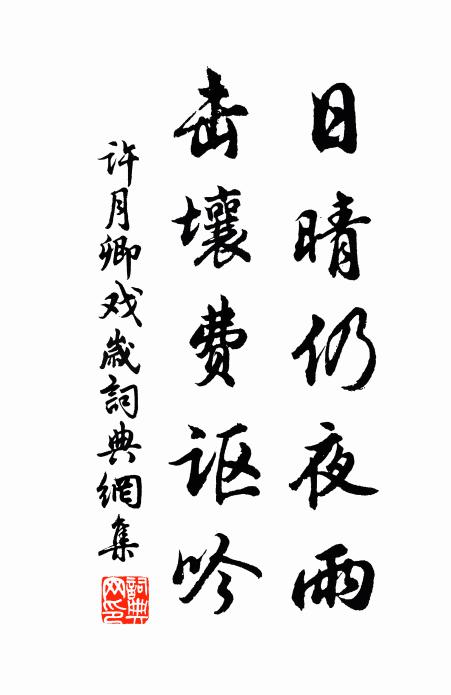 日晴仍夜雨
击壤费讴吟
许月卿戏岁詞典網集
詞典网印